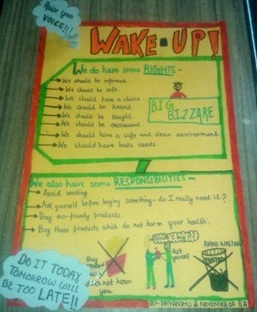 Raise your
VOICE!!!
WAKE-UP!
We do have some RIGHTS-
We should be informed
We should be safe
We should have a choice
We should be heard
We should be taught
We should be
We should have a safe and clean environment
We should have basic needs
BIG
BIZZARE
We also have some RESPONSIBILITIES-
Avoid wasting
Ask yourself before buying something - do I really need it?
Buy eco-friendly products
Buy those products which do not harm your health.
Buy
does
not harm you
Ask
yourself
AVOID WASTING
DO IT TODAY
TOMORROW WILL
BE TOO LATE!!
BY- PRIYANSHU & OF